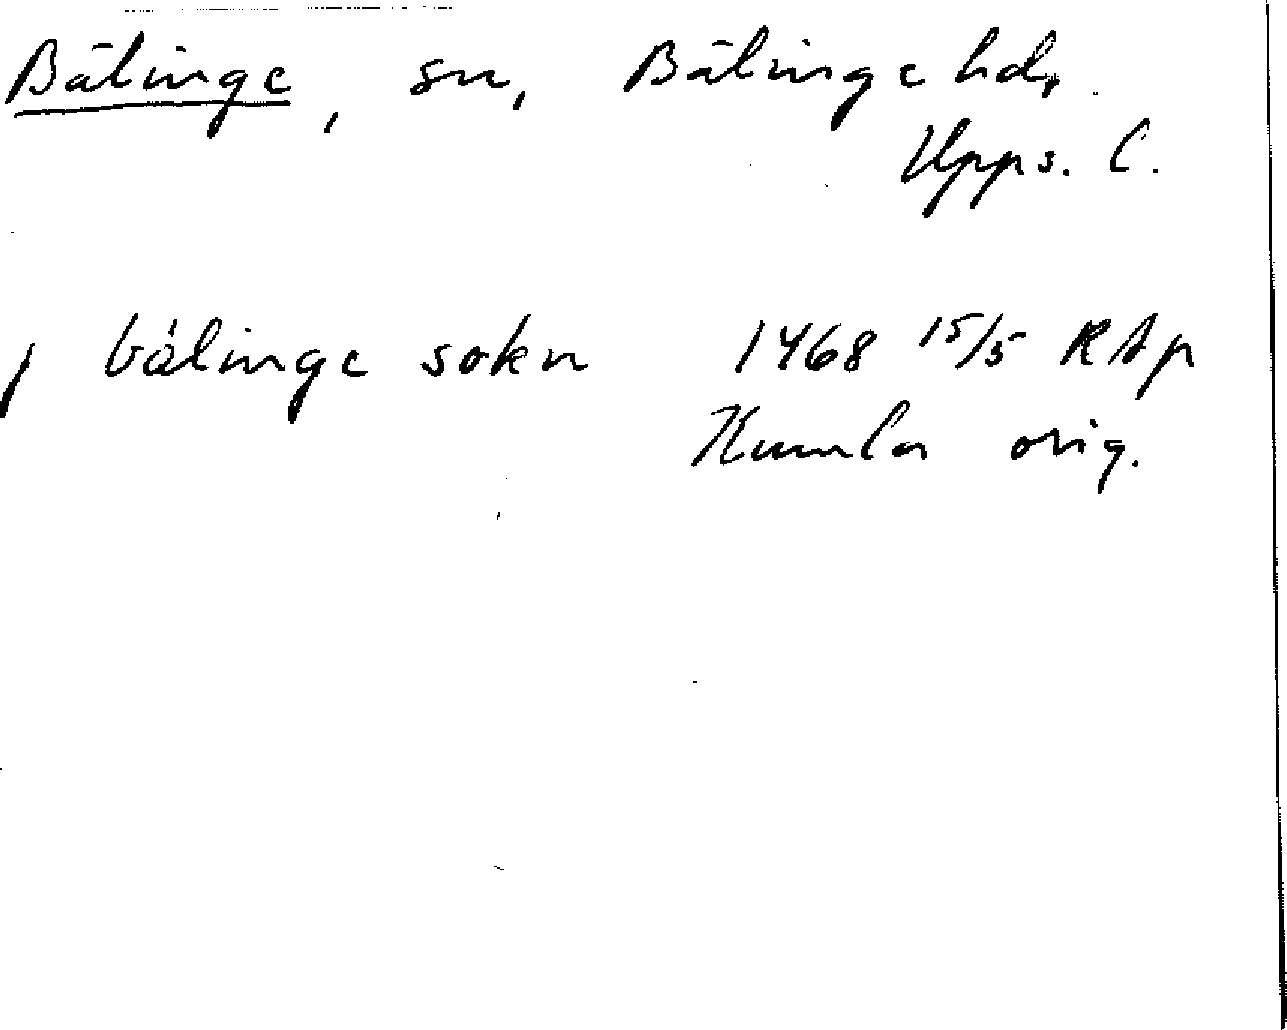 Bälinge, sn, Bälinge hd,
Upps. l.
j bälinge sokn 1468 15/5 RAp
Kumla orig.